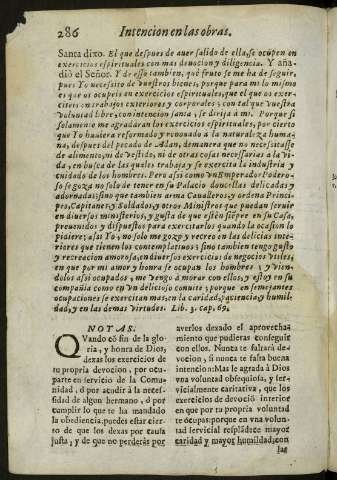 286 Intencion en las obras.
Santa dixo. El que despues de auer salido de ella, se ocupen en
exercicios espirituales con mas deuocion y diligencia. Y aña-
dió el Señor. Y de esso tambien, què fruto se me ha de seguir,
pues Yo no necesito de vuestros bienes, porque para mi lo mismo
es que os ocupeis en exercicios espirituales, que el que os exer-
citeis en trabajos exteriores y corporales; con tal que vuestra
voluntad libre, con intencion santa, se dirija à mi. Porque si
solamente me agradaran los exercicios espirituales, por cierto
que Yo huuiera reformado y renouado à la naturaleza huma-
na, despues del pecado de Adan, demanera que no necesitasse
de alimento, ni de vestido, ni de otras cosas necessarias à la vi-
da, en busca de las quales trabaja y se exercita la industria y
cuidado de los hombres. Pero assi como vn Emperador Podero-
so se goza no solo de tener en su Palacio doncellas delicadas y
adornadas; sino que tambien arma Caualleros, y ordena Princi-
pes, Capitanes y Soldados, y otros Ministros que puedan seruir
en diuersos ministerios, y gusta de que estèn siẽpre en su Casa,
preuenidos y dispuestos para exercitarlos quando la ocasion lo
pidiere; assi Yo, no solo me gozo y recreo en las delicias inte-
riores que tienen los contemplatiuos; sino tambien tengo gusto
y recreacion amorosa, en diuersos exercicios de negocios vtiles,
en que por mi amor y honra se ocupan los hombres; y vien-
dolos assi ocupados, me vengo à morar con ellos, y estoy en su
compañia como en vn delicioso conuite; porque en semejantes
ocupaciones se exercitan mas, en la caridad, paciencia y humil-
dad, y en las demas virtudes. Lib. 3. cap. 69.
NOTAS.
QVando cõ fin de la glo-
ria, y honra de Dios,
dexas los exercicios de
tu propria deuocion, por ocu-
parte en seruicio de la Comu-
nidad, ó por acudir à la necessi-
dad de algun hermano, ó por
cumplir lo que te ha mandado
la obediencia, puedes estar cier-
to de que los dexas por causa
justa, y de que no perderàs por
auerlos dexado el aprouecha-
miento que pudieras conseguir
con ellos. Nunca te faltarà de-
uocion, si nunca te falta buena
intencion: Mas le agrada à Dios
vna voluntad obsequiosa, y ser-
uicialmente caritatiua, que los
exercicios de deuociõ interior
en que por tu propria voluntad
te ocupas: porque en vna volun-
tad seruicial resplãdece mayor
caridad y mayor humildad; con